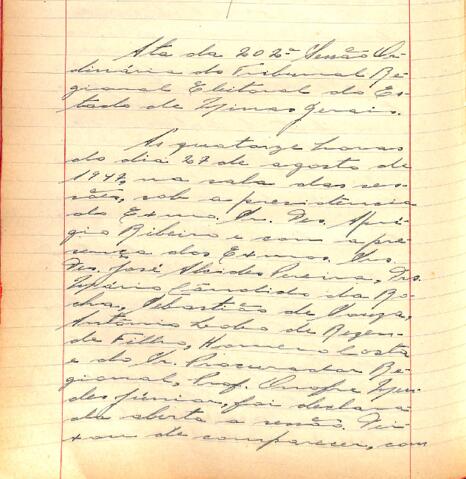 Ata da 202ª Sessão Or-
dinária do Tribunal Re-
gional Eleitoral do Es-
tado de Minas Gerais.
Às quatorze horas
do dia 27 de agosto de
1947, na sala das ses-
sões, sob a presidência
do Exmo. Sr. Des. Aprí-
gio Ribeiro e com a pre-
sença dos Exmos. Srs.
Des. José Alcides Pereira, Drs.
Mário Cândido da Ro-
cha, Sebastião de Souza,
Antônio Lobo de Rezen-
de Filho, Homero Costa
e do Sr. Procurador Re-
gional, Prof. Onofre Men-
des Júnior, foi declara-
da aberta a sessão. Dei-
xou de comparecer, com